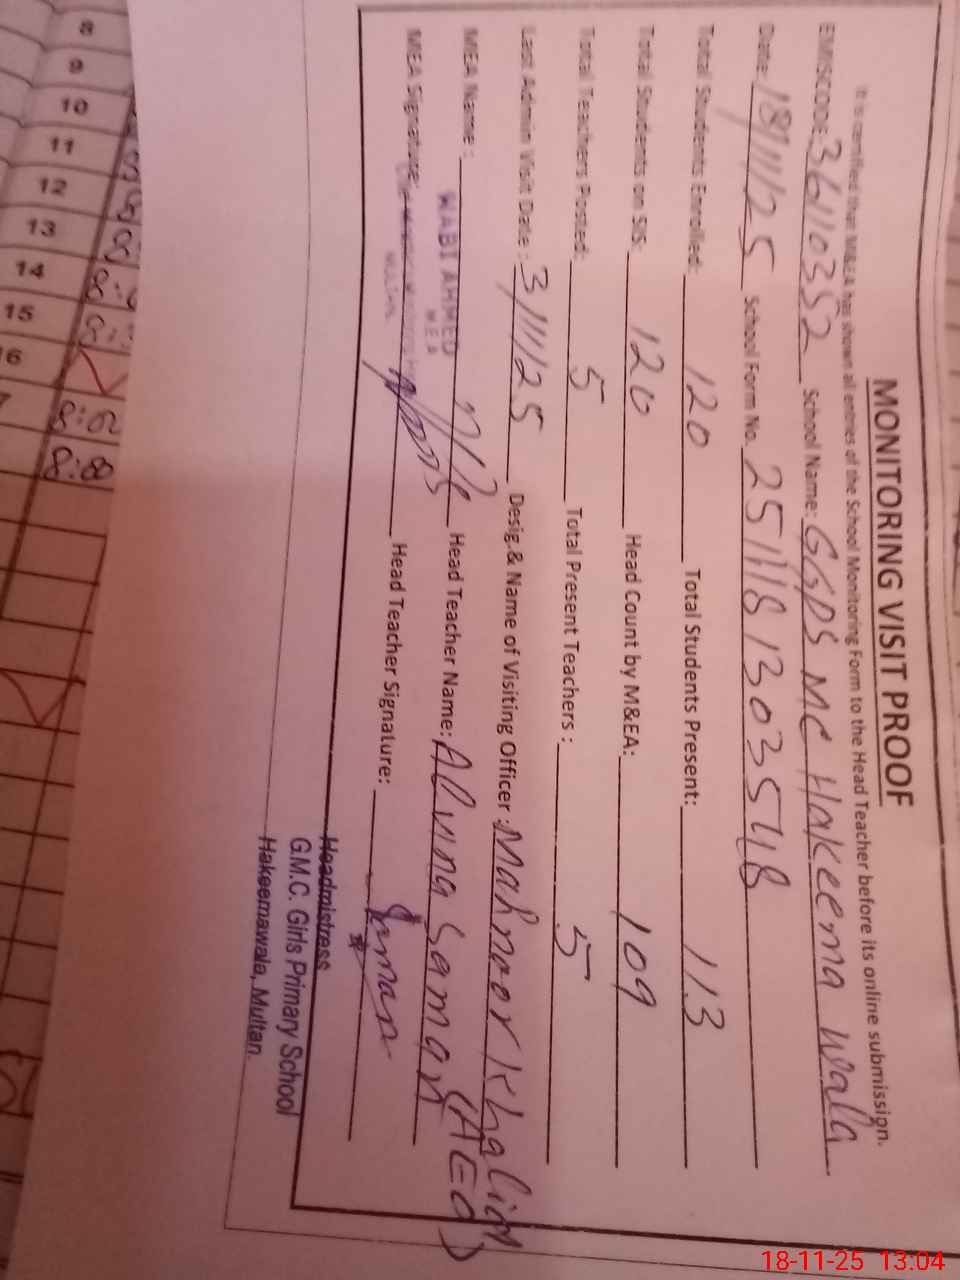 MONITORING VISIT PROOF
It is certified that M&EA has shown all entries of the School Monitoring Form to the Head Teacher before its online submission.
EMISCODE: 36110352 School Name: GGPS MC Hakeema wala
Date: 18/11/25 School Form No. 25111813035418
Total Students Enrolled: 120 Total Students Present: 113
Total Students on SIS: 120 Head Count by M&EA: 109
Total Teachers Posted: 5 Total Present Teachers: 5
Last Admin Visit Date: 3/11/25 Desig.& Name of Visiting Officer: Mahnoor Khalid (AEO)
MEA Name: Head Teacher Name: Alvina Saman
WABI AHMED
MEA
MEA Signature: Head Teacher Signature:
MULTAN
Headmistress
G.M.C. Girls Primary School
Hakeemawala, Multan.
8
9
10
11
12
13
14
15
8:00
18-11-25 13:04